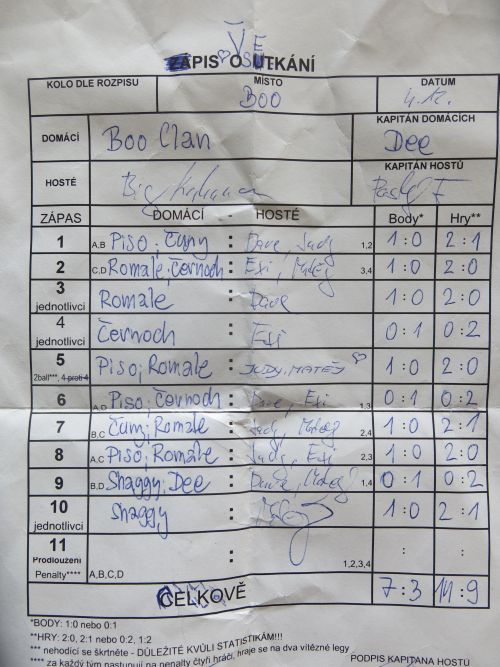 VŠE
ZÁPIS O UTKÁNÍ
KOLO DLE ROZPISU MÍSTO DATUM
BOO 4.12.
DOMÁCÍ Boo Clan KAPITÁN DOMÁCÍCH
Dee
HOSTÉ KAPITÁN HOSTŮ
ZÁPAS DOMÁCÍ - HOSTÉ Body* Hry**
1 A,B Piso, Čuny : Dave, Judy 1,2 1:0 2:1
2 C,D Romale, Černoch : Exi, Matěj 3,4 1:0 2:0
3 jednotlivci Romale : Dave 1:0 2:0
4 jednotlivci Černoch : Exi 0:1 0:2
5 2ball***, 4 proti 4 Piso, Romale : JUDY, MATĚJ 1:0 2:0
6 A,D Piso, Černoch : Dave, Exi 1,3 0:1 0:2
7 B,C Čuny, Romale : Judy, Matěj 2,4 1:0 2:1
8 A,C Piso, Romale : Judy, Exi 2,3 1:0 2:0
9 B,D Shaggy, Dee : Dave, Matěj 1,4 0:1 0:2
10 jednotlivci Shaggy : 1:0 2:1
11 Prodloužení Penalty**** A,B,C,D : 1,2,3,4 : :
CELKOVĚ 7:3 14:9
*BODY: 1:0 nebo 0:1
**HRY: 2:0, 2:1 nebo 0:2, 1:2
*** nehodící se škrtněte - DŮLEŽITÉ KVŮLI STATISTIKÁM!!!
**** za každý tým nastupují na penalty čtyři hráči, hraje se na dva vítězné legy
PODPIS KAPITÁNA HOSTŮ